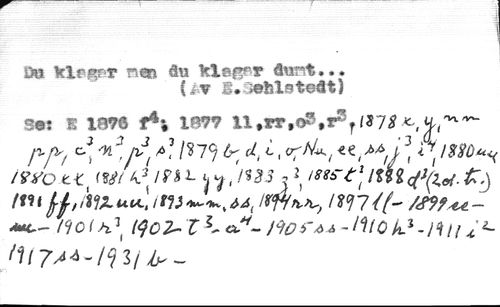 Du klagar men du klagar dumt...
(Av E.Sehlstedt)
Se: E 1876 f⁴; 1877 ll,rr,o³,r³, 1878 x, y, nn
pp, c³, n³, p³, s³, 1879 b, d, i, o, ee, ss, j³, i⁴, 1880 uu
1880 xx, 1881 h³, 1882 yy, 1883 z³, 1885 t³, 1888 d³ (2 ol. tr.)
1891 ff, 1892 uu, 1893 mm, ss, 1894 rr, 1897 ll - 1899
- 1901 r³, 1902 t³ - a⁴ - 1905 ss - 1910 h³ - 1911 i²
1917 ss - 1931 b -